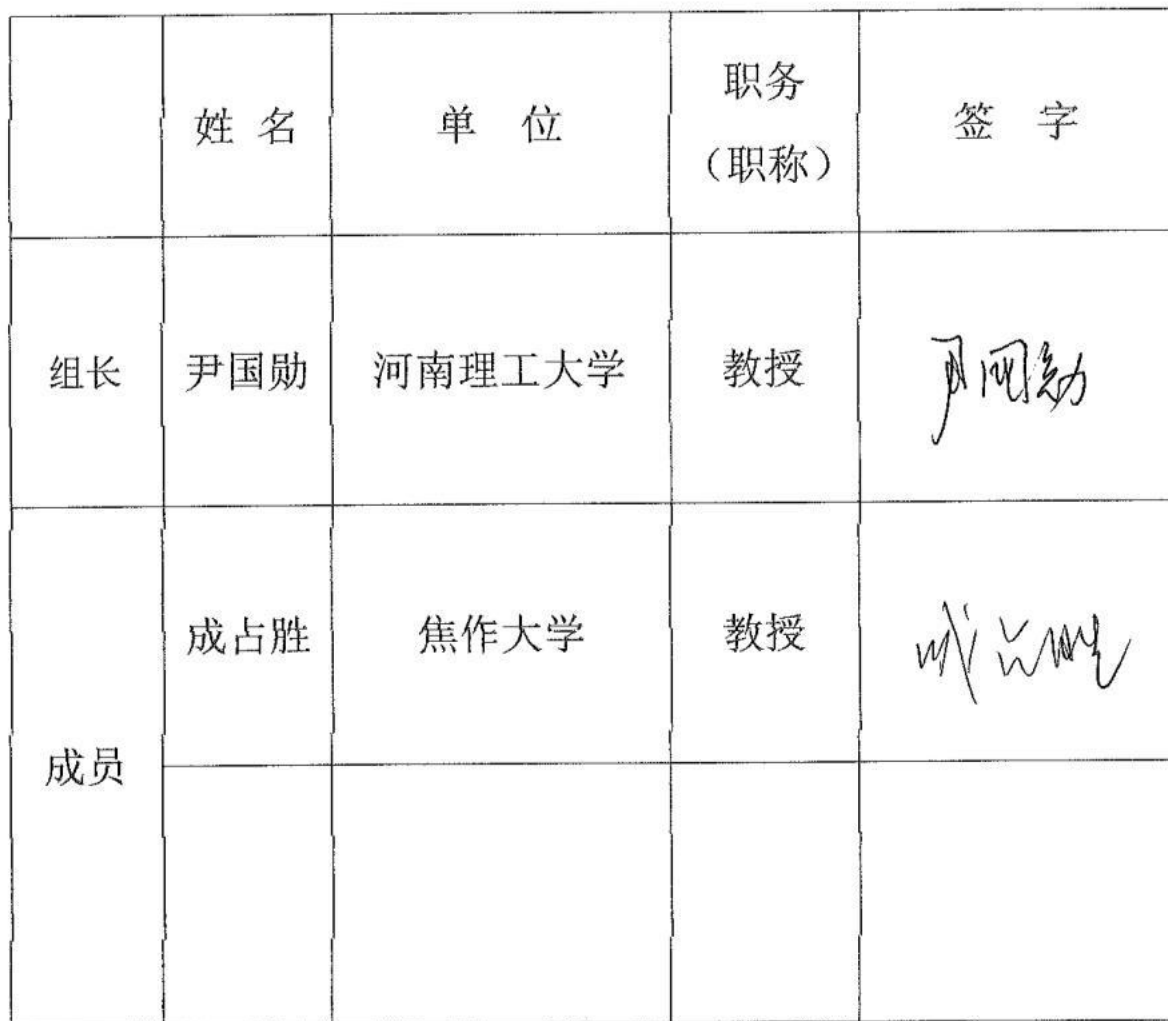 姓 名 单 位 职务（职称） 签 字
组长 尹国勋 河南理工大学 教授 尹国勋
成员 成占胜 焦作大学 教授 成占胜